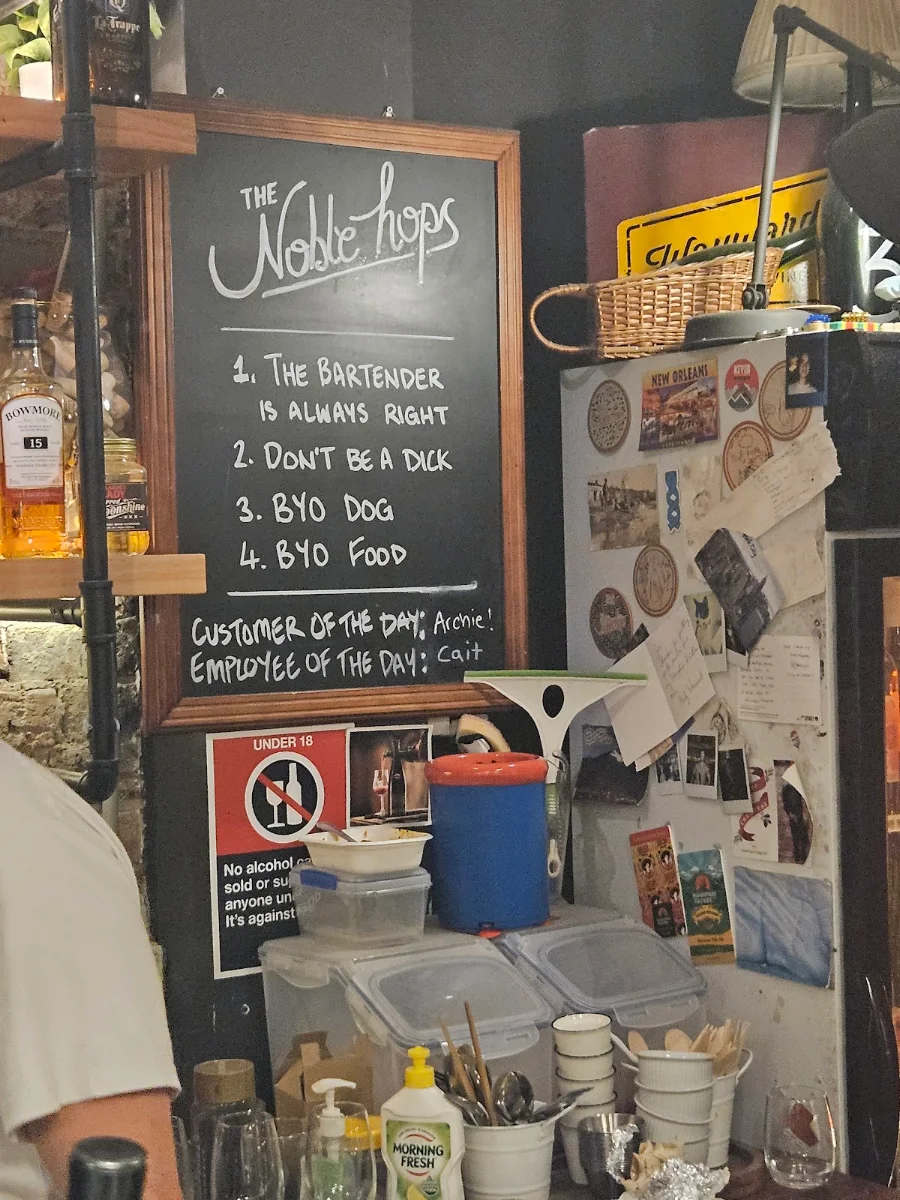 La Trappe
THE
Noble hops
1. THE BARTENDER
IS ALWAYS RIGHT
2. DON'T BE A DICK
3. BYO DOG
4. BYO FOOD
CUSTOMER OF THE DAY: Archie!
EMPLOYEE OF THE DAY: Cait
BOWMORE
15
moonshine
Wayward
NEW ORLEANS
UNDER 18
No alcohol
sold or
anyone
It's against
MORNING
FRESH